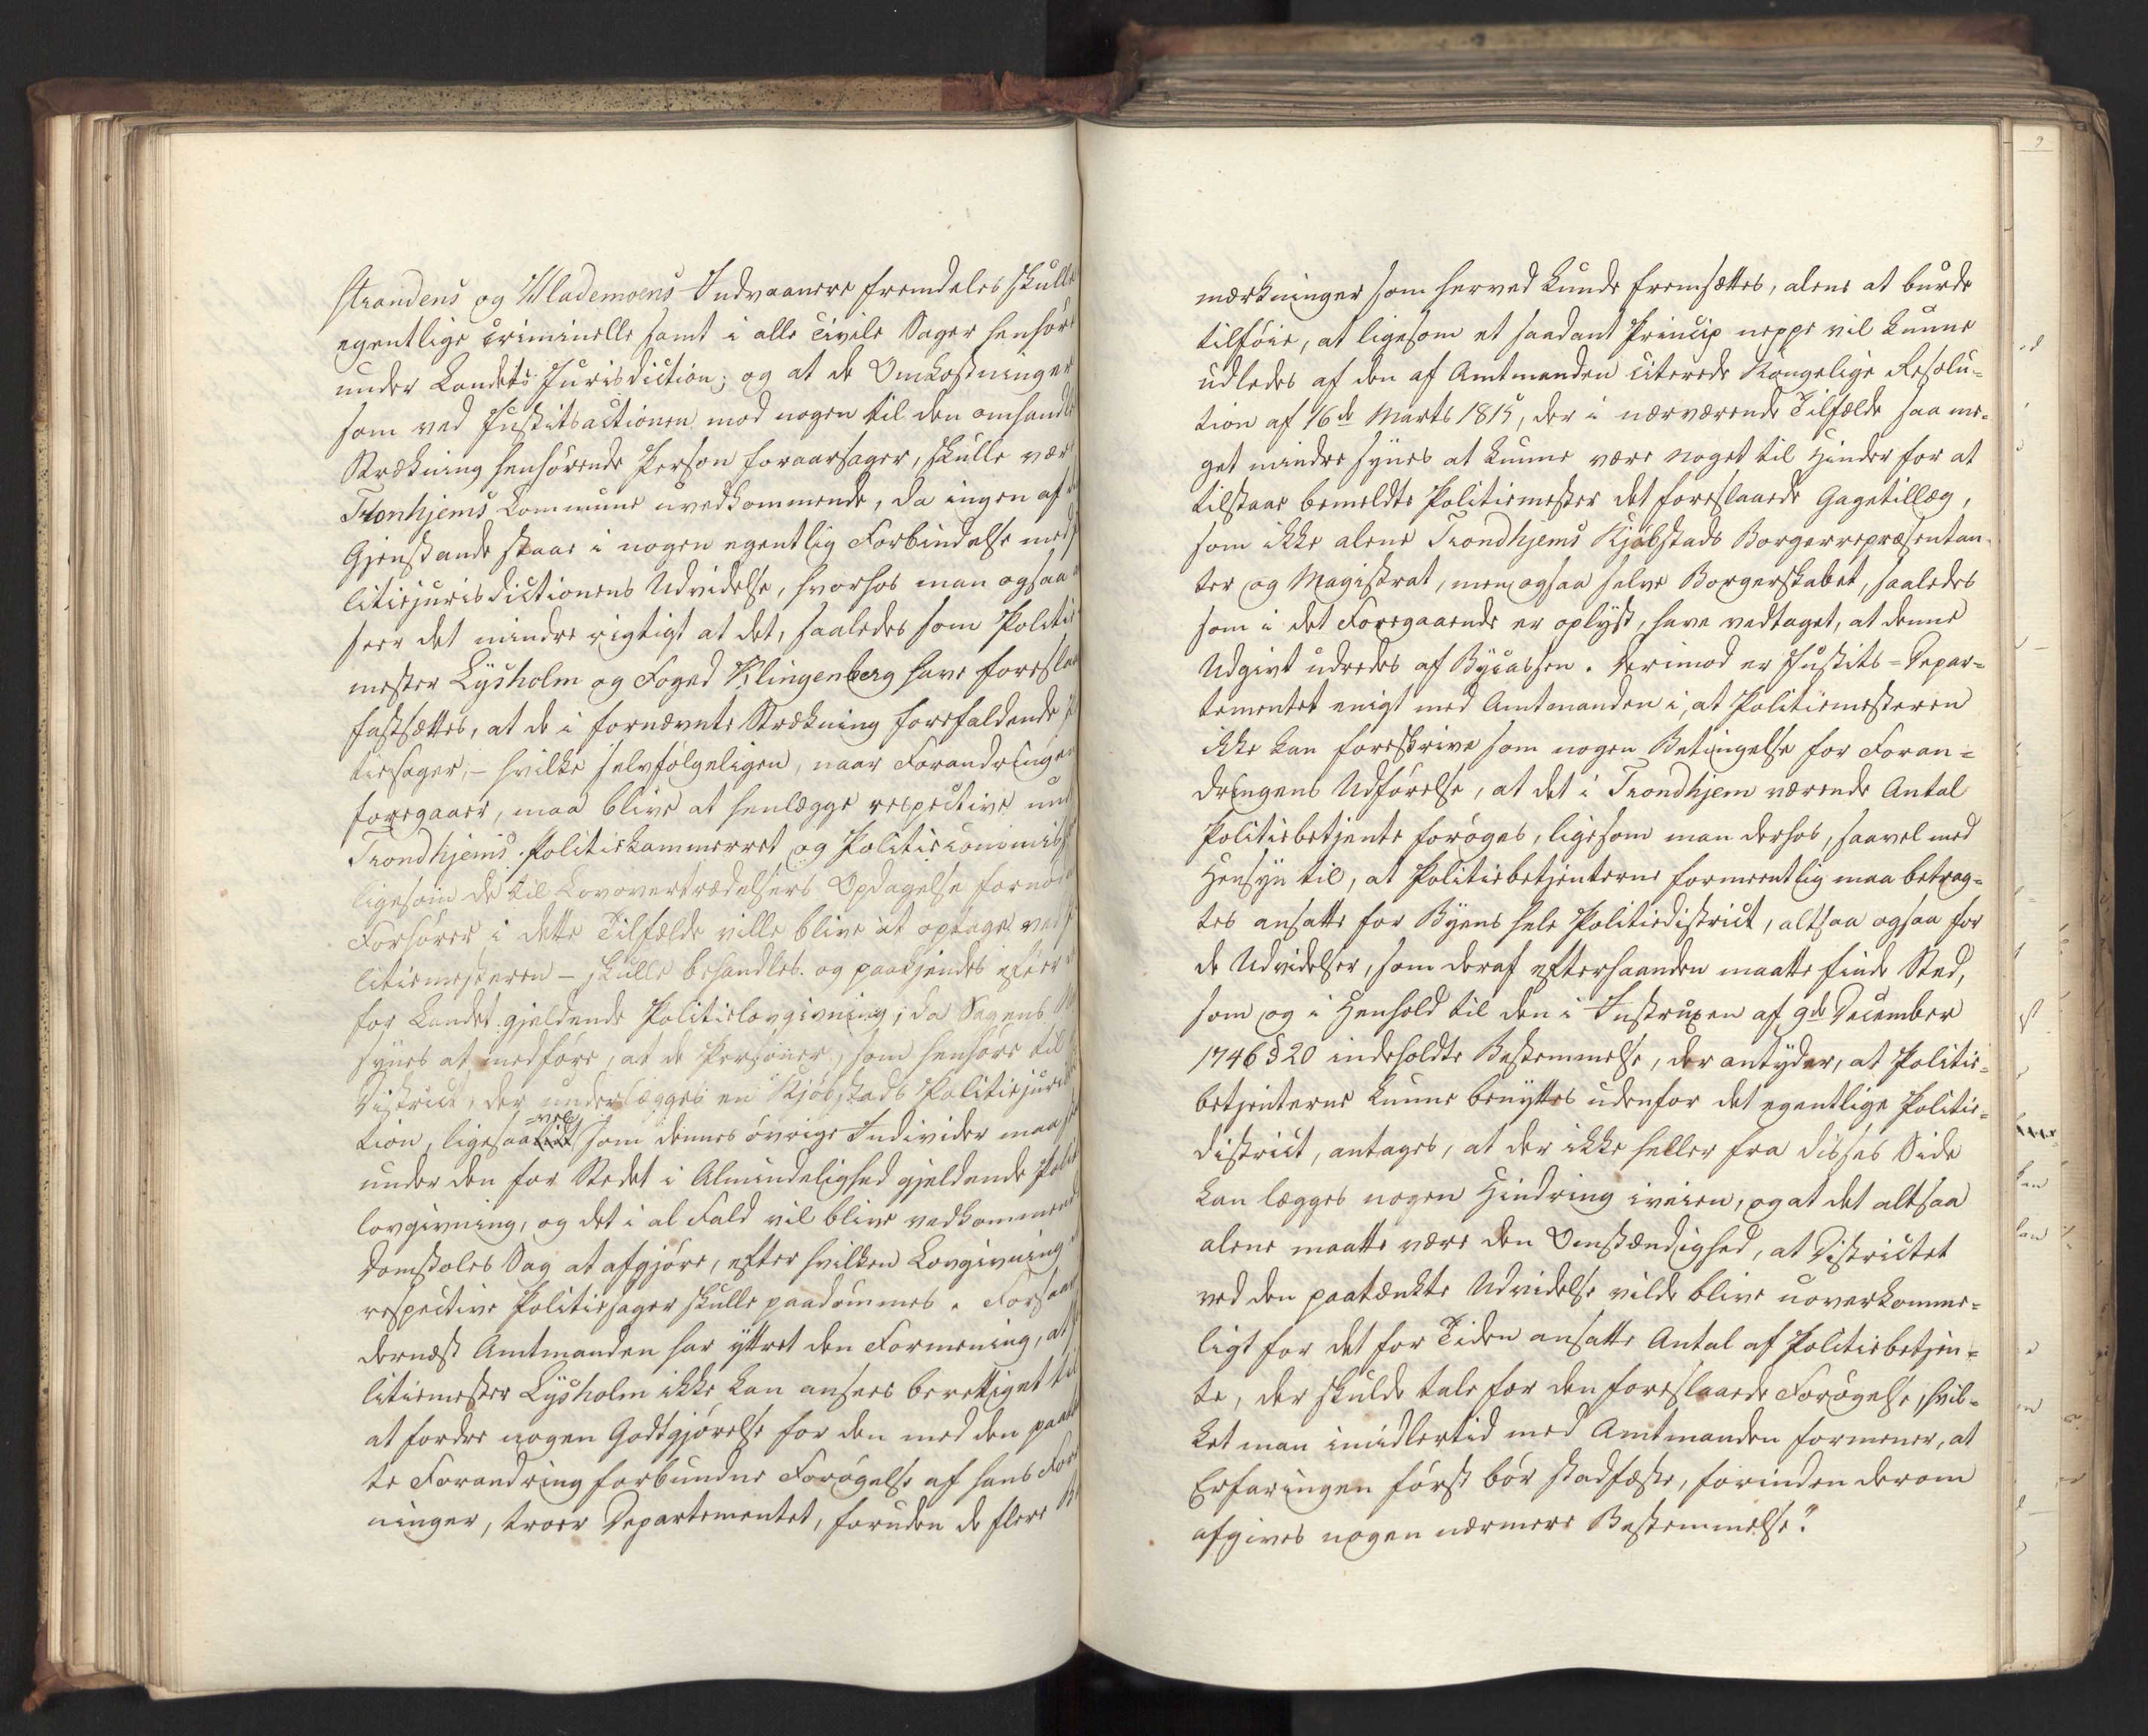 strandens og Ihlademoens Indvaanere fremdeles skulle
egentlige criminelle samt i alle Civile Sager henhøre
under Landets Jurisdiction; og at de Omkostninger
som ved Justitsactionen mod nogen til den omhandl
Strækning henhørende Person foraarsager, skulle vær
Tronhjems Commune uvedkommende, da ingen af
Gjenstande staae i nogen egentlig Forbindelse med
litiejurisdictionens Udvidelse, hvorhos man ogsaa
seer det mindre rigtigt at det, saaledes som Politie
mester Lysholm og Foged Klingenberg have foreslaa
fastsættes, at de i fornævnte Strækning forefaldende
tiesager, – hvilke selvfølgeligen, naar Forandringen
foregaaer, maa blive at henlægge respective und
Trondhjems Politiekammerret og Politiecommis
ligesom de til Lovovertrædelsers Opdagelse fornø
Forhører i dette Tilfælde ville blive at optage ved
litiemesteren – skulle behandles og paakjendes efter
for Landet gjeldende Politielovgivning; da Sagens
synes at medføre, at de Personer, som henhøre til
District, der underlægges en Kjøbstads Politiejuris
tion, ligesaavel som dennes øvrige Individer maa
under den for Stedet i Almindelighed gjeldende Poli
lovgivning, og det i al Fald vil blive vedkommende
Domstoles Sag at afgjøre, efter hvilken Lovgivning
respective Politiesager skulle paadømmes. Forsaa
dernæst Amtmanden har yttret den Formening, at
litiemester Lysholm ikke kan ansees berettiget til
at fordre nogen Godtgjørelse for den med den paat
te Forandring forbundne Forøgelse af hans For
ninger, troer Departementet, foruden de flere
mærkninger som herved kunde fremsættes, alene at burde
tilføie, at ligesom et saadant Princip neppe vil kunne
udledes af den af Amtmanden citerede Kongelige Resolu-
tion af 16de Marts 1815, der i nærværende Tilfælde saa me-
get mindre synes at kunne være noget til Hinder for at
tilstaae bemeldte Politiemester det foreslaaede Gagetillæg,
som ikke alene Trondhjems Kjøbstads Borgerrepræsentan-
ter og Magistrat, men ogsaa selve Borgerskabet, saaledes
som i det Foregaaende er oplyst, have vedtaget, at denne
Udgivt udredes af Bycassen. Derimod er Justits-Depar-
tementet enigt med Amtmanden i, at Politiemesteren
ikke kan foreskrive som nogen Betingelse for Foran-
dringens Udførelse, at det i Trondhjem værende Antal
Politiebetjente forøges, ligesom man derhos, saavel med
Hensyn til, at Politiebetjenterne formeentlig maa betrag-
tes ansatte for Byens hele Politiedistrict, altsaa ogsaa for
de Udvidelser, som deraf efterhaanden maatte finde Sted,
som og i Henhold til den i Instruxen af 9de December
1746 § 20 indeholdte Bestemmelse, der antyder, at Politie-
betjenterne kunne benyttes udenfor det egentlige Politie-
district, antages, at der ikke heller fra disses Side
kan lægges nogen Hindring iveien, og at det altsaa
alene maatte være den Omstændighed, at Districtet
ved den paatænkte Udvidelse vilde blive uoverkomme-
ligt for det for Tiden ansatte Antal af Politiebetjen-
te, der skulde tale for den foreslaaede Forøgelse, hvil-
ket man imidlertid med Amtmanden formener, at
Erfaringen først bør stadfæste, forinden derom
afgives nogen nærmere Bestemmelse."